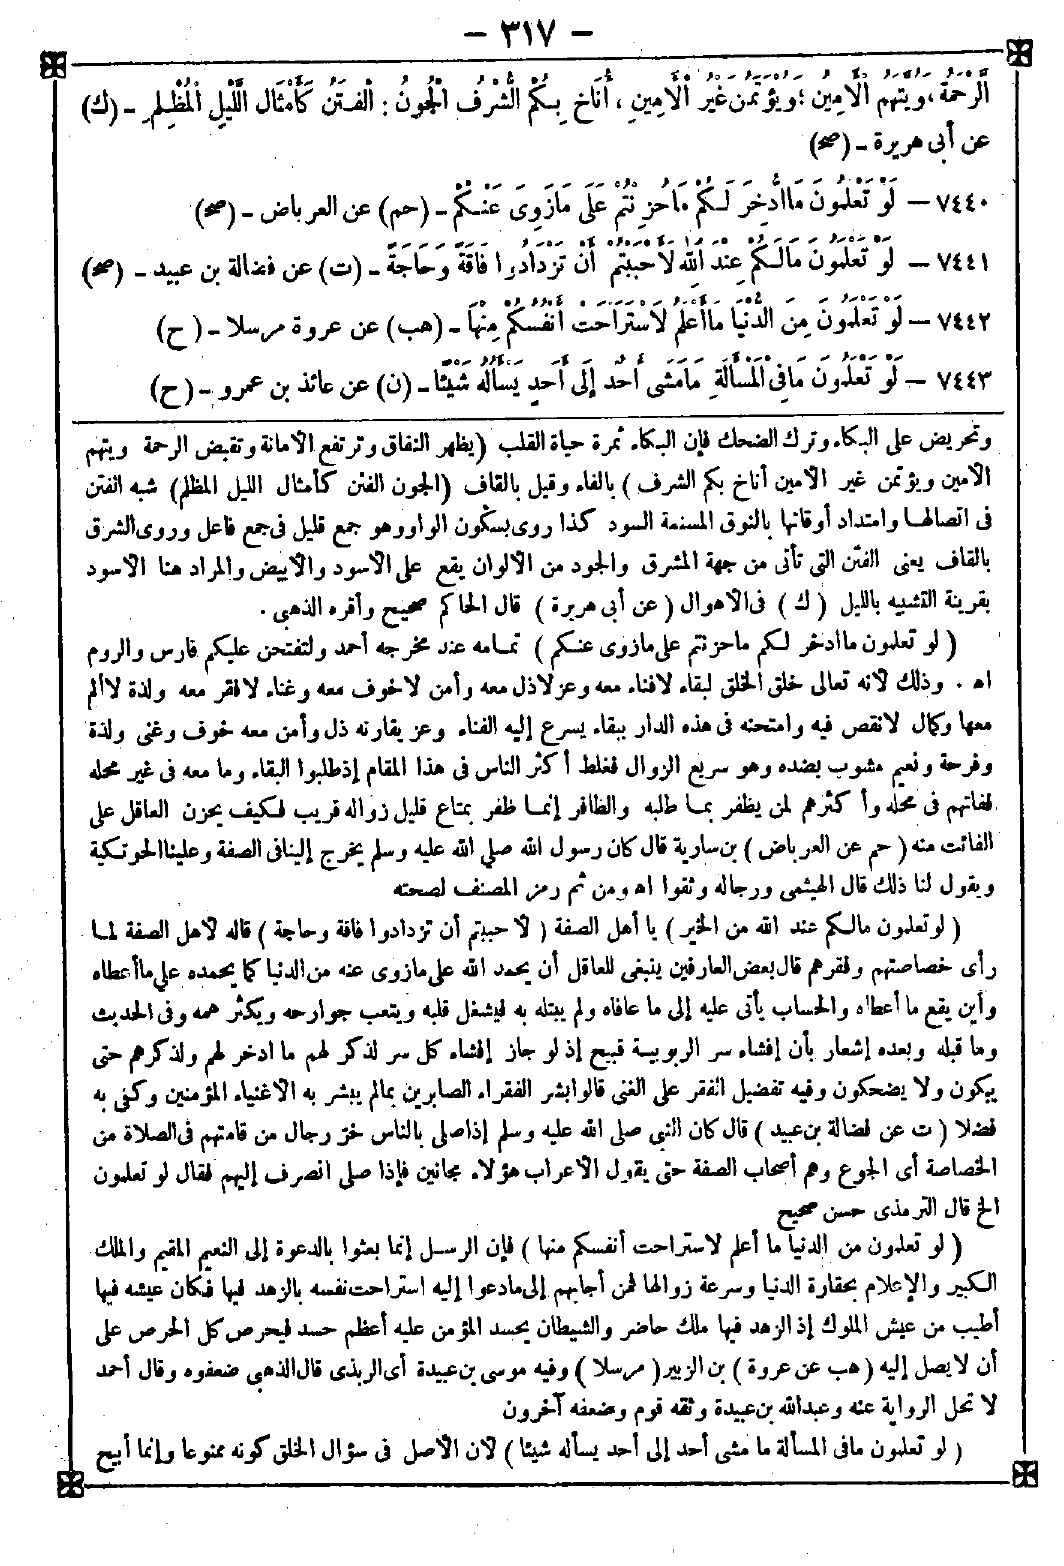 - ٣١٧ -
الرَّحْمَةُ، وَيُتَّهَمُ الْأَمِينُ ؛ وَيُؤْتَمَنُ غَيْرُ الْأَمِينِ ، أَنَاخَ بِكُمُ الشُّرْفُ الْجُونُ : الْفِتَنُ كَأَمْثَالِ اللَّيْلِ الْمُظْلِمِ - (ك)
عن أبى هريرة - (صح)
٧٤٤٠ - لَوْ تَعْلَمُونَ مَا ادُّخِرَ لَكُمْ مَا حَزِنْتُمْ عَلَى مَا زُوِىَ عَنْكُمْ - (حم) عن العرباض - (صح)
٧٤٤١ - لَوْ تَعْلَمُونَ مَا لَكُمْ عِنْدَ اللهِ لَأَحْبَبْتُمْ أَنْ تَزْدَادُوا فَاقَةً وَحَاجَةً - (ت) عن فضالة بن عبيد - (صح)
٧٤٤٢ - لَوْ تَعْلَمُونَ مِنَ الدُّنْيَا مَا أَعْلَمُ لَاسْتَرَاحَتْ أَنْفُسُكُمْ مِنْهَا - (هب) عن عروة مرسلا - (ح)
٧٤٤٣ - لَوْ تَعْلَمُونَ مَا فِى الْمَسْأَلَةِ مَا مَشَى أَحَدٌ إِلَى أَحَدٍ يَسْأَلُهُ شَيْئًا - (ن) عن عائذ بن عمرو - (ح)
وتحريض على البكاء وترك الضحك فإن البكاء ثمرة حياة القلب (يظهر النفاق وترتفع الأمانة وتقبض الرحمة ويتهم
الأمين ويؤتمن غير الأمين أناخ بكم الشرف) بالفاء وقيل بالقاف (الجون الفتن كأمثال الليل المظلم) شبه الفتن
فى اتصالها وامتداد أوقاتها بالنوق المسنمة السود كذا روى بسكون الواو وهو جمع قليل فى جمع فاعل وروى الشرق
بالقاف يعنى الفتن التى تأتى من جهة المشرق والجود من الالوان يقع على الأسود والأبيض والمراد هنا الأسود
بقرينة التشبيه بالليل (ك) فى الأهوال (عن أبى هريرة) قال الحاكم صحيح وأقره الذهبى .
(لو تعلمون ما ادخر لكم ما حزنتم على ما زوى عنكم) تمامه عند مخرجه أحمد ولتفتحن عليكم فارس والروم
اه . وذلك لأنه تعالى خلق الخلق لبقاء لا فناء معه وعز لا ذل معه وأمن لا خوف معه وغناء لا فقر معه ولذة لا ألم
معها وكمال لا نقص فيه وامتحنه فى هذه الدار ببقاء يسرع إليه الفناء وعز يقارنه ذل وأمن معه خوف وغنى ولذة
وفرحة ونعيم مشوب بضده وهو سريع الزوال فغلط أكثر الناس فى هذا المقام إذ طلبوا البقاء وما معه فى غير محله
ففاتهم فى محله وأكثرهم لمن يظفر بما طلبه والظافر إنما ظفر بمتاع قليل زواله قريب فكيف يحزن العاقل على
الفائت منه (حم عن العرباض) بن سارية قال كان رسول الله صلى الله عليه وسلم يخرج إلينا فى الصفة وعلينا الحوتكية
ويقول لنا ذلك قال الهيثمى ورجاله وثقوا اه ومن ثم رمز المصنف لصحته
(لو تعلمون مالكم عند الله من الخير) يا أهل الصفة (لأحببتم أن تزدادوا فاقة وحاجة) قاله لأهل الصفة لما
رأى خصاصتهم وفقرهم قال بعض العارفين ينبغى للعاقل أن يحمد الله على ما زوى عنه من الدنيا كما يحمده على ما أعطاه
وأين يقع ما أعطاه والحساب يأتى عليه إلى ما عافاه ولم يبتله به فيشغل قلبه ويتعب جوارحه ويكثر همه وفى الحديث
وما قبله وبعده إشعار بأن إفشاء سر الربوبية قبيح إذ لو جاز إفشاء كل سر لذكر لهم ما ادخر لهم ولذكرهم حتى
يبكون ولا يضحكون وفيه تفضيل الفقر على الغنى قالوا بشر الفقراء الصابرين بمالم يبشر به الأغنياء المؤمنين وكفى به
فضلا (ت عن فضالة بن عبيد) قال كان النبى صلى الله عليه وسلم إذا صلى بالناس خر رجال من قامتهم فى الصلاة من
الخصاصة أى الجوع وهم أصحاب الصفة حتى يقول الأعراب هؤلاء مجانين فإذا صلى انصرف إليهم فقال لو تعلمون
الخ قال الترمذى حسن صحيح
(لو تعلمون من الدنيا ما أعلم لاستراحت أنفسكم منها) فإن الرسل إنما بعثوا بالدعوة إلى النعيم المقيم والملك
الكبير والإعلام بحقارة الدنيا وسرعة زوالها فمن أجابهم إلى ما دعوا إليه استراحت نفسه بالزهد فيها فكان عيشه فيها
أطيب من عيش الملوك إذ الزهد فيها ملك حاضر والشيطان يحسد المؤمن عليه أعظم حسد فيحرص كل الحرص على
أن لا يصل إليه (هب عن عروة) بن الزبير (مرسلا) وفيه موسى بن عبيدة أى الربذى قال الذهبى ضعفوه وقال أحمد
لا تحل الرواية عنه وعبدالله بن عبيدة وثقه قوم وضعفه آخرون
(لو تعلمون مافى المسألة ما مشى أحد إلى أحد يسأله شيئا) لأن الأصل فى سؤال الخلق كونه ممنوعا وإنما أبيح